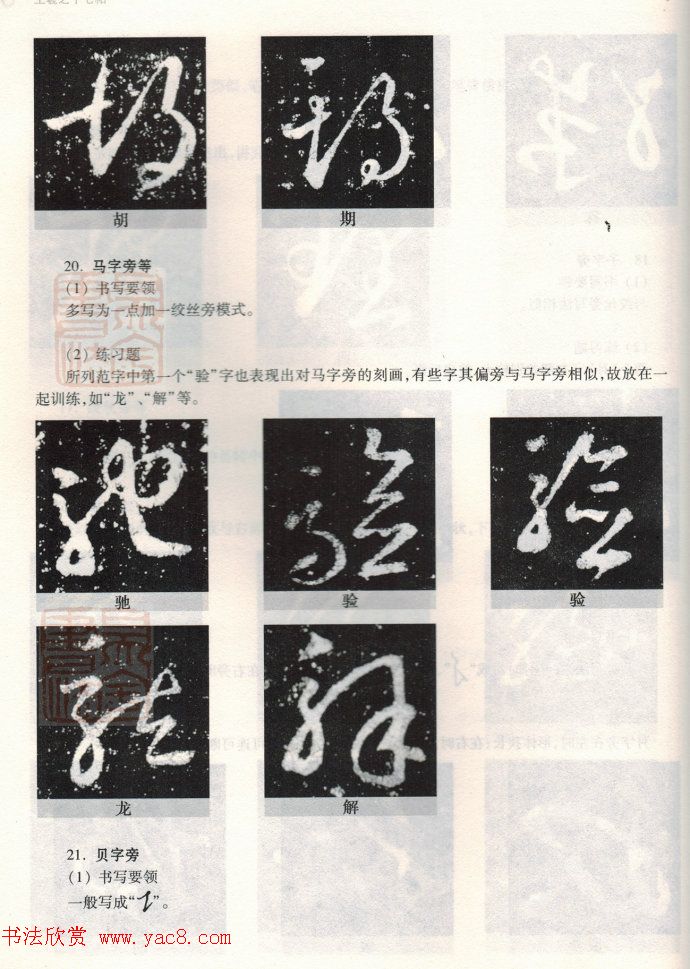 王羲之十七帖
胡 期
20. 马字旁等
(1) 书写要领
多写为一点加一绞丝旁模式。
(2) 练习题
所列范字中第一个“验”字也表现出对马字旁的刻画,有些字其偏旁与马字旁相似,故放在一
起训练,如“龙”、“解”等。
驰 验 验
龙 解
21. 贝字旁
(1) 书写要领
一般写成“”。
书法欣赏 www.yac8.com